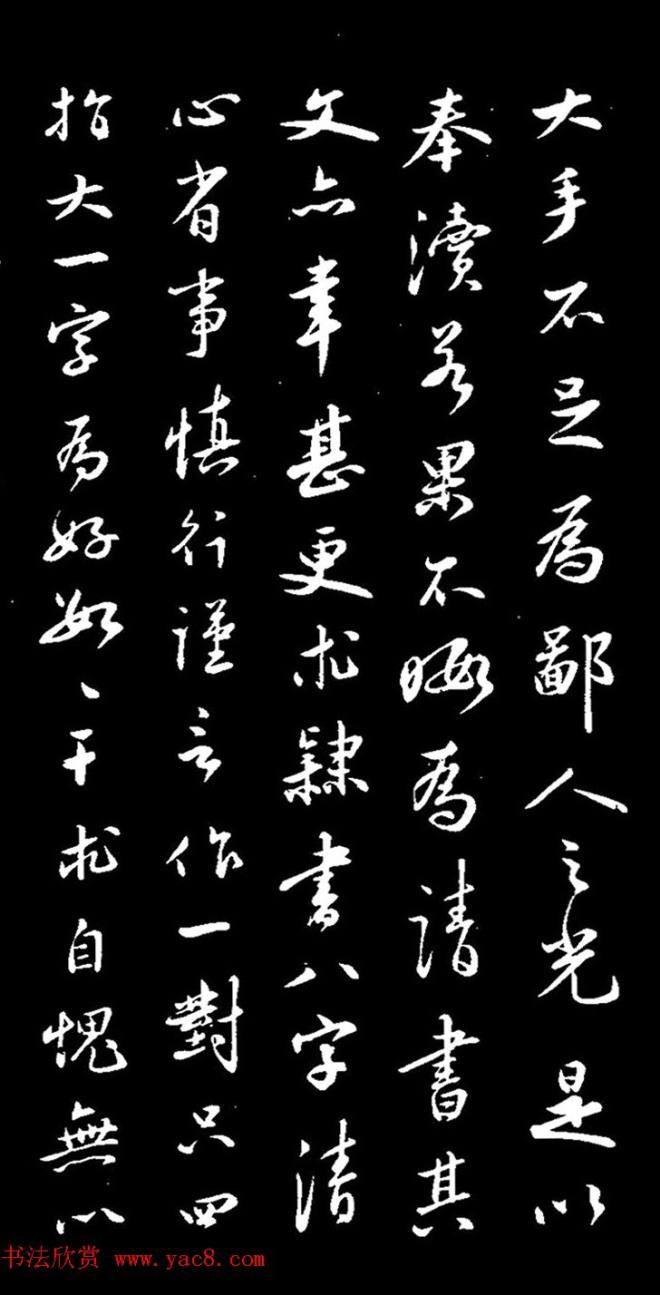 大手不足為鄙人之光是以
奉瀆若果不暇為請書其
文亦幸甚更求隸書八字清
心省事慎行謹言作一對只四
指大一字為好數〻干求自愧無以
书法欣赏 www.yac8.com